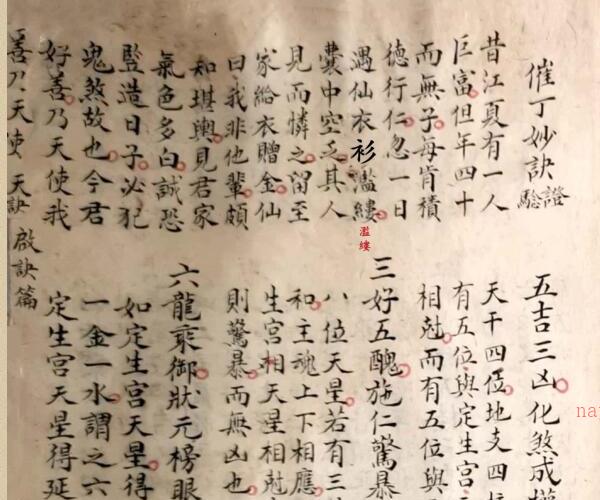 催丁妙訣
證驗
昔江夏有一人
巨富但年四十
而無子每肯積
德行仁忽一日
遇仙衣衫濫縷
濫縷
囊中空乏其人
見而憐之留至
家給衣贈金仙
曰我非他輩頗
知堪輿見君家
氣色多白誠恐
豎造日子必犯
鬼煞故也今君
好善乃天使我
善乃天使 天訣
啟訣篇
五吉三凶化煞成權
天干四位地支四位
有五位與定生宮
相尅而有五位與
三好五醜施仁驚暴
八位天星若有三
和主魂上下相應
生宮相天星相尅
則驚暴而無凶也
六龍乘御狀元榜眼
如定生宮天星得
一金一水謂之六
定生宮天星得延
na